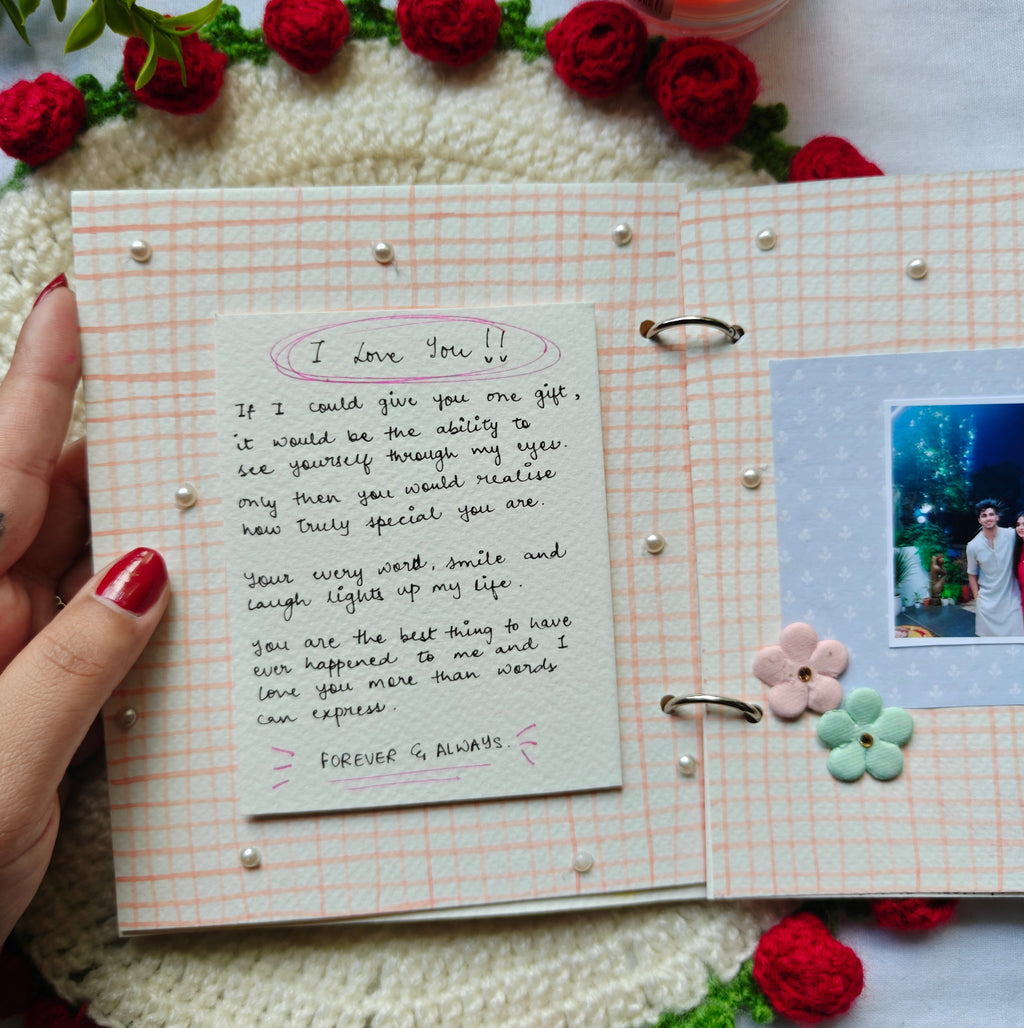 I Love You !!
If I could give you one gift,
it would be the ability to
see yourself through my eyes.
only then you would realise
how truly special you are.
Your every word, smile and
laugh lights up my life.
You are the best thing to have
ever happened to me and I
love you more than words
can express.
FOREVER & ALWAYS.